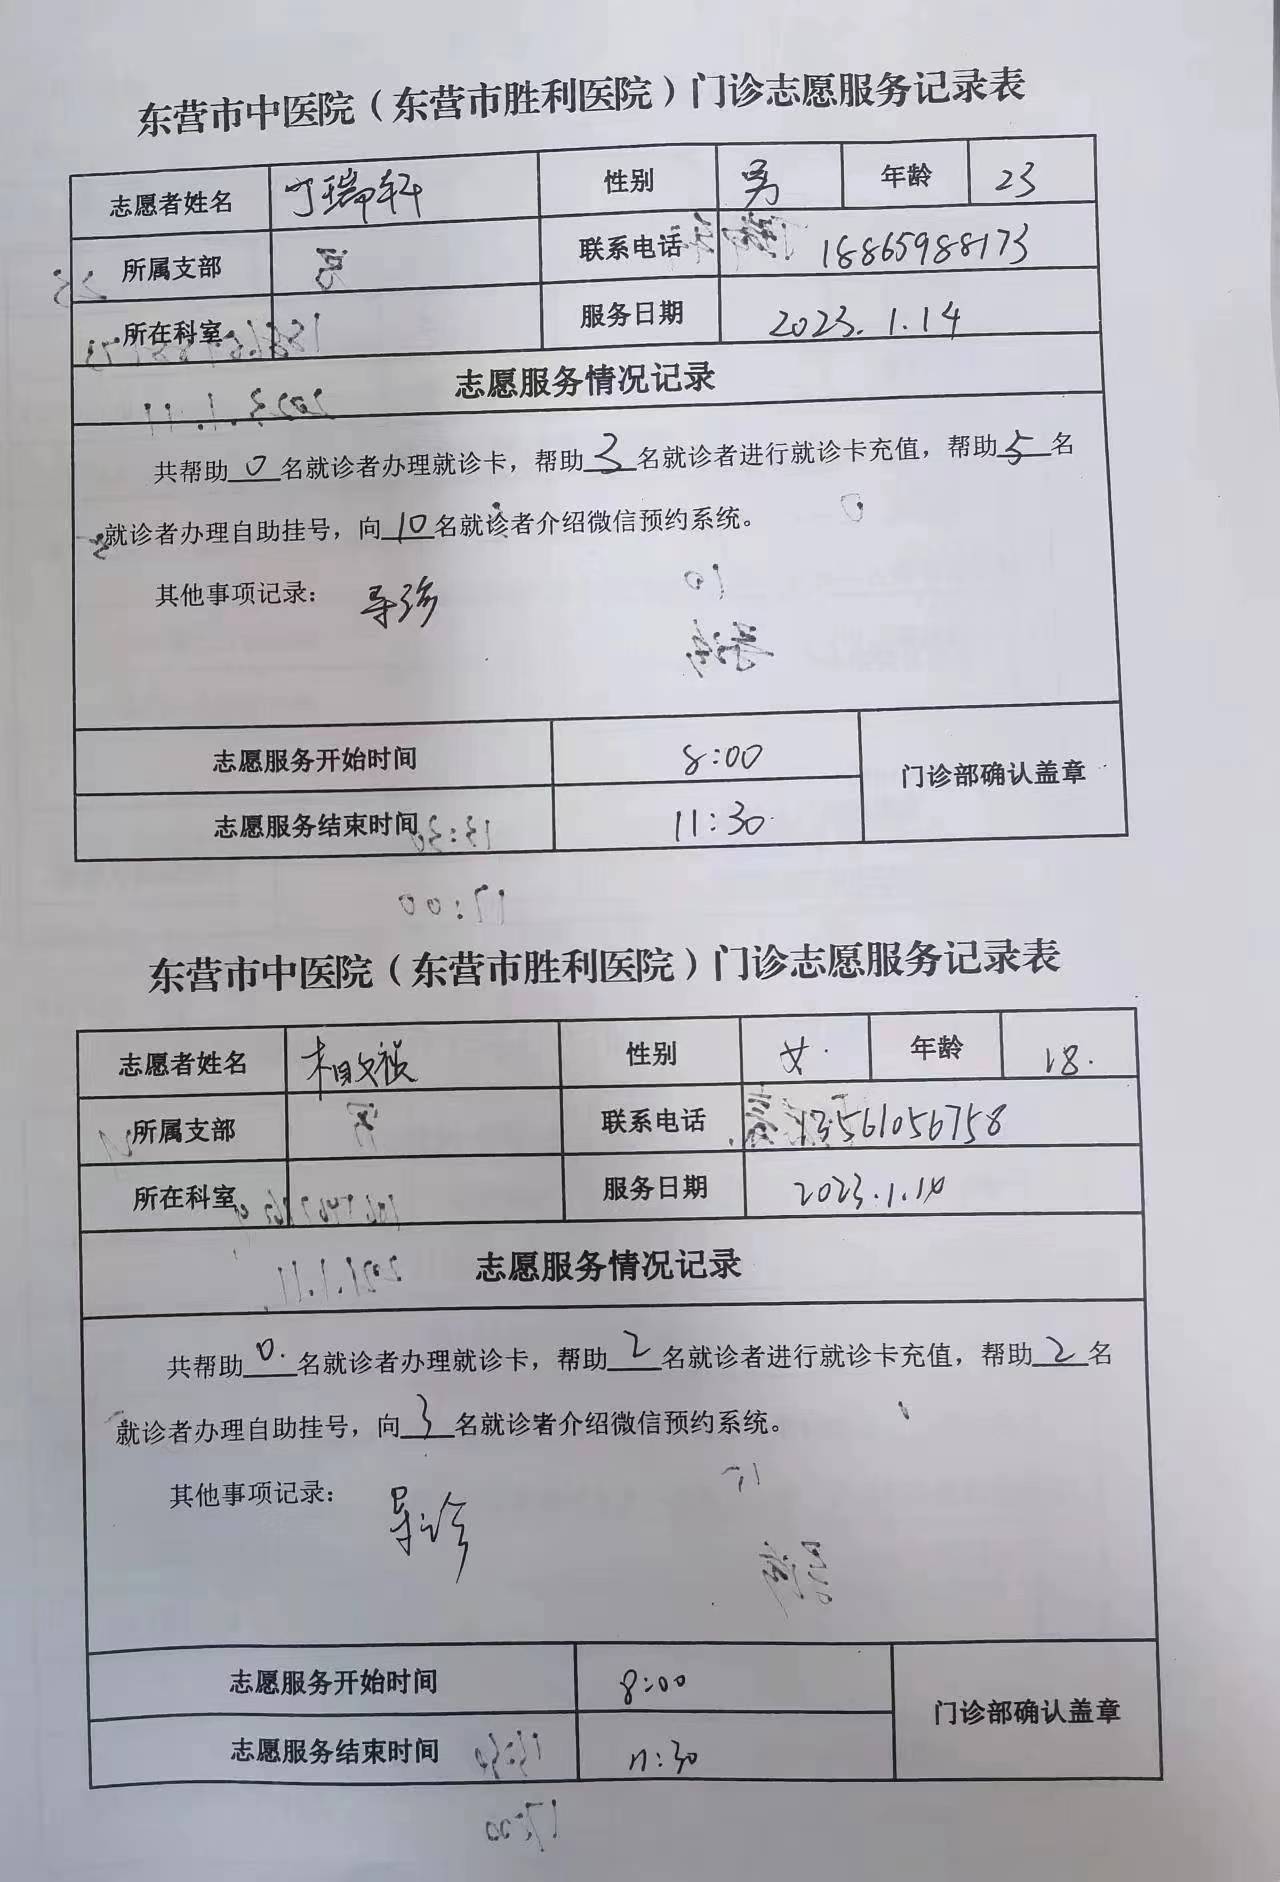 东营市中医院（东营市胜利医院）门诊志愿服务记录表
志愿者姓名 丁瑞轩 性别 男 年龄 23
所属支部 联系电话 18865988173
所在科室 服务日期 2023.1.14
志愿服务情况记录
共帮助0名就诊者办理就诊卡，帮助3名就诊者进行就诊卡充值，帮助5名
就诊者办理自助挂号，向10名就诊者介绍微信预约系统。
其他事项记录： 导诊
志愿服务开始时间 8:00
门诊部确认盖章
志愿服务结束时间 11:30
东营市中医院（东营市胜利医院）门诊志愿服务记录表
志愿者姓名 相文祯 性别 女 年龄 18.
所属支部 联系电话 13561056758
所在科室 服务日期 2023.1.14
志愿服务情况记录
共帮助0.名就诊者办理就诊卡，帮助2名就诊者进行就诊卡充值，帮助2名
就诊者办理自助挂号，向3名就诊者介绍微信预约系统。
其他事项记录： 导诊
志愿服务开始时间 8:00
门诊部确认盖章
志愿服务结束时间 11:30